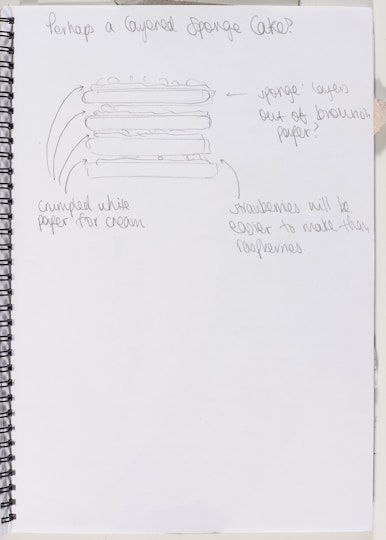 Perhaps a layered Sponge Cake?
sponge layers
out of brownish
paper?
crumpled white
paper for cream
strawberries will be
easier to make than
raspberries